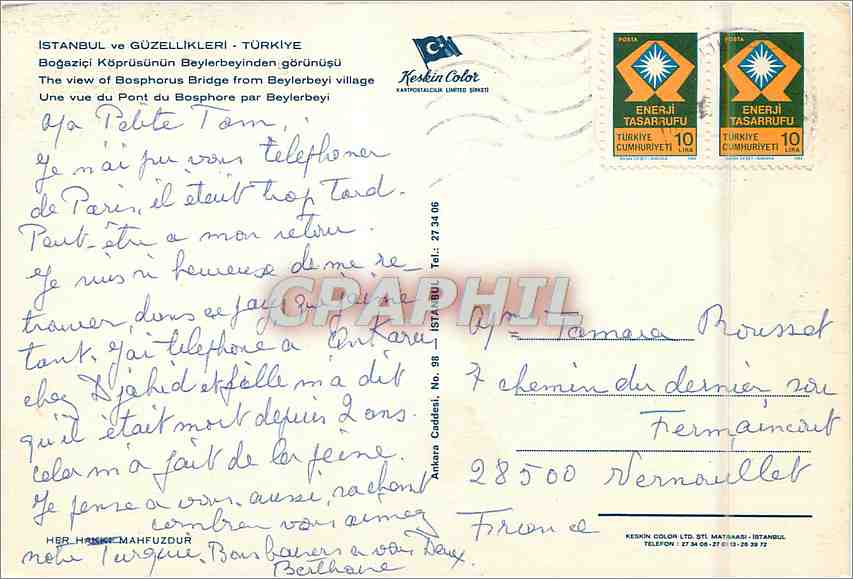 İSTANBUL ve GÜZELLİKLERİ - TÜRKİYE
Boğaziçi Köprüsünün Beylerbeyinden görünüşü
The view of Bosphorus Bridge from Beylerbeyi village
Une vue du Pont du Bosphore par Beylerbeyi
Keskin Color
KARTPOSTALCILIK LIMITED ŞİRKETİ
POSTA
ENERJİ
TASARRUFU
TÜRKİYE
CUMHURİYETİ
10
LIRA
POSTA
ENERJİ
TASARRUFU
TÜRKİYE
CUMHURİYETİ
10
LIRA
Ma Petite Tam,
Je n'ai pu vous telephoner
de Paris, il était trop tard.
Peut-être a mon retour.
Je suis si heureuse de me re-
trouver, dans ce pays que j'aime
tant. J'ai telephone a Ankara
chez Djahid et fille m'a dit
qu'il était mort depuis 2 ans.
cela m'a fait de la peine.
Je pense a vous aussi, sachant
combien vous aimez
notre Turquie. Bons baisers a vous Deux.
HER HAKKI MAHFUZDUR
Ankara Caddesi, No. 98 İSTANBUL Tel.: 27 34 06
CPAPHIL
Tamara Rousset
7 chemin du dernier sou
Fermaincourt
28500 Vernouillet
France
KESKİN COLOR LTD. ŞTİ. MATBAASI - İSTANBUL
TELEFON : 27 34 06 - 27 0113 - 26 39 72